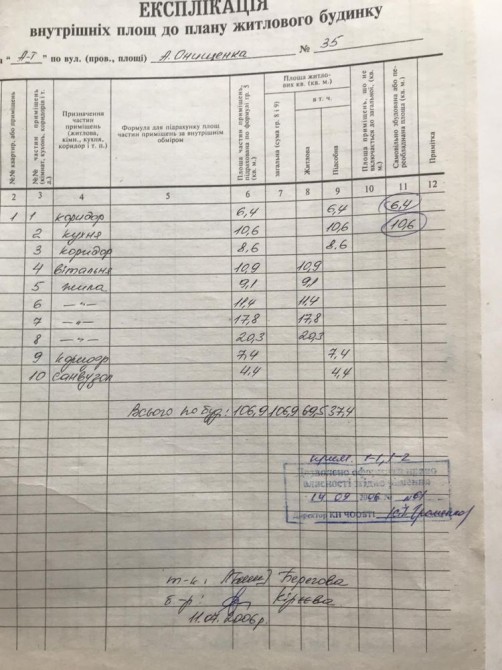 ЕКСПЛІКАЦІЯ
внутрішніх площ до плану житлового будинку
"А-1" по вул. (пров., площі) А. Онищенка № 35
№№ квартир, або приміщень
№№ частин приміщень (кімнат, кухонь, коридорів і т. д.)
Призначення частин приміщень (житлова, кухня, коридор і т. п.)
Формула для підрахунку площ частин приміщень за внутрішнім обміром
Площа частин приміщень, підрахована по формулі гр. 5 (кв. м.)
Площа житлових кв. (кв. м.)
загальна (сума гр. 8 і 9)
в т. ч.
Житлова
Підсобна
Площа приміщень, що не включається до загальної, (кв. м.)
Самовільно збудована або переобладнана площа (кв. м.)
Примітка
2 3 4 5 6 7 8 9 10 11 12
1 1 коридор 6,4 6,4 6,4
2 кухня 10,6 10,6 10,6
3 коридор 8,6 8.6
4 вітальня 10,9 10,9
5 жила 9,1 9,1
6 -"- 11,4 11,4
7 -"- 17,8 17,8
8 -"- 20,3 20,3
9 коридор 7,4 7,4
10 санвузол 4,4 4,4
Всього по буд: 106,9 106,9 69,5 37,4
прим. 1-1, 1-2
Дозволено оформити право
власності згідно рішення
14 09 2006
Директор КП ЧООБТІ
т-к: Берегова
б-р: Кірєєва
11.07.2006р.